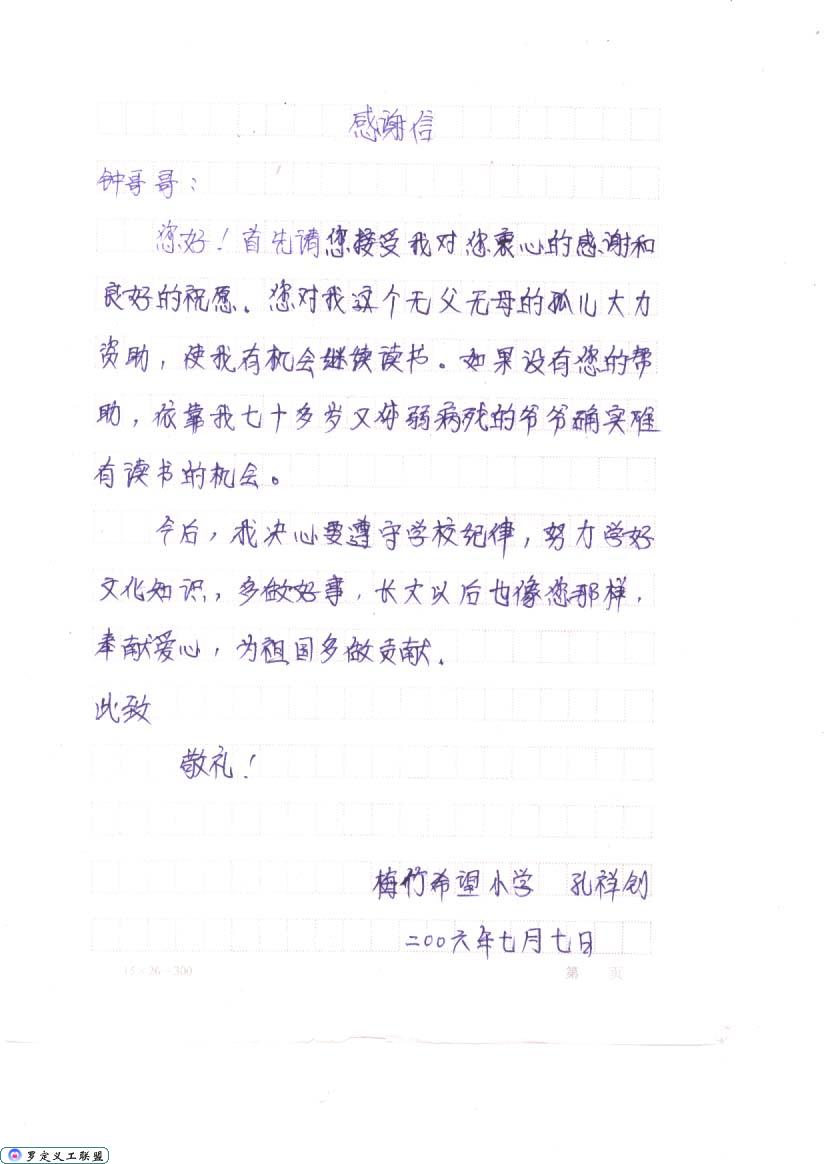 感谢信
钟哥哥：
您好！首先请您接受我对您衷心的感谢和
良好的祝愿。您对我这个无父无母的孤儿大力
资助，使我有机会继续读书。如果没有您的帮
助，依靠我七十多岁又体弱病残的爷爷确实难
有读书的机会。
今后，我决心要遵守学校纪律，努力学好
文化知识，多做好事，长大以后也像您那样，
奉献爱心，为祖国多做贡献.
此致
敬礼！
梅竹希望小学 孔祥创
二〇〇六年七月七日
15×26=300 第 页
罗定义工联盟